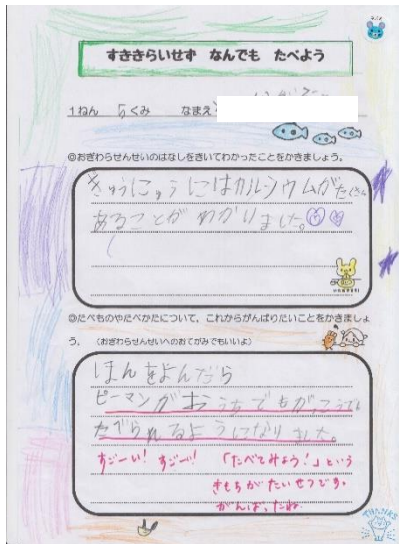 すききらいせず なんでも たべよう
1ねん 5くみ なまえ
◎おぎわらせんせいのはなしをきいてわかったことをかきましょう。
ぎゅうにゅうにはカルシウムがたくさん
あることが わかりました。
◎たべものやたべかたについて、これからがんばりたいことをかきましょ
う。（おぎわらせんせいへのおてがみでもいいよ）
ほんをよんだら
ピーマンが おうちでもがっこうでも
たべられるようになりました。
すごーい! すごーい! 「たべてみよう!」という
きもちがたいせつです。
がんばったね。
THANKS